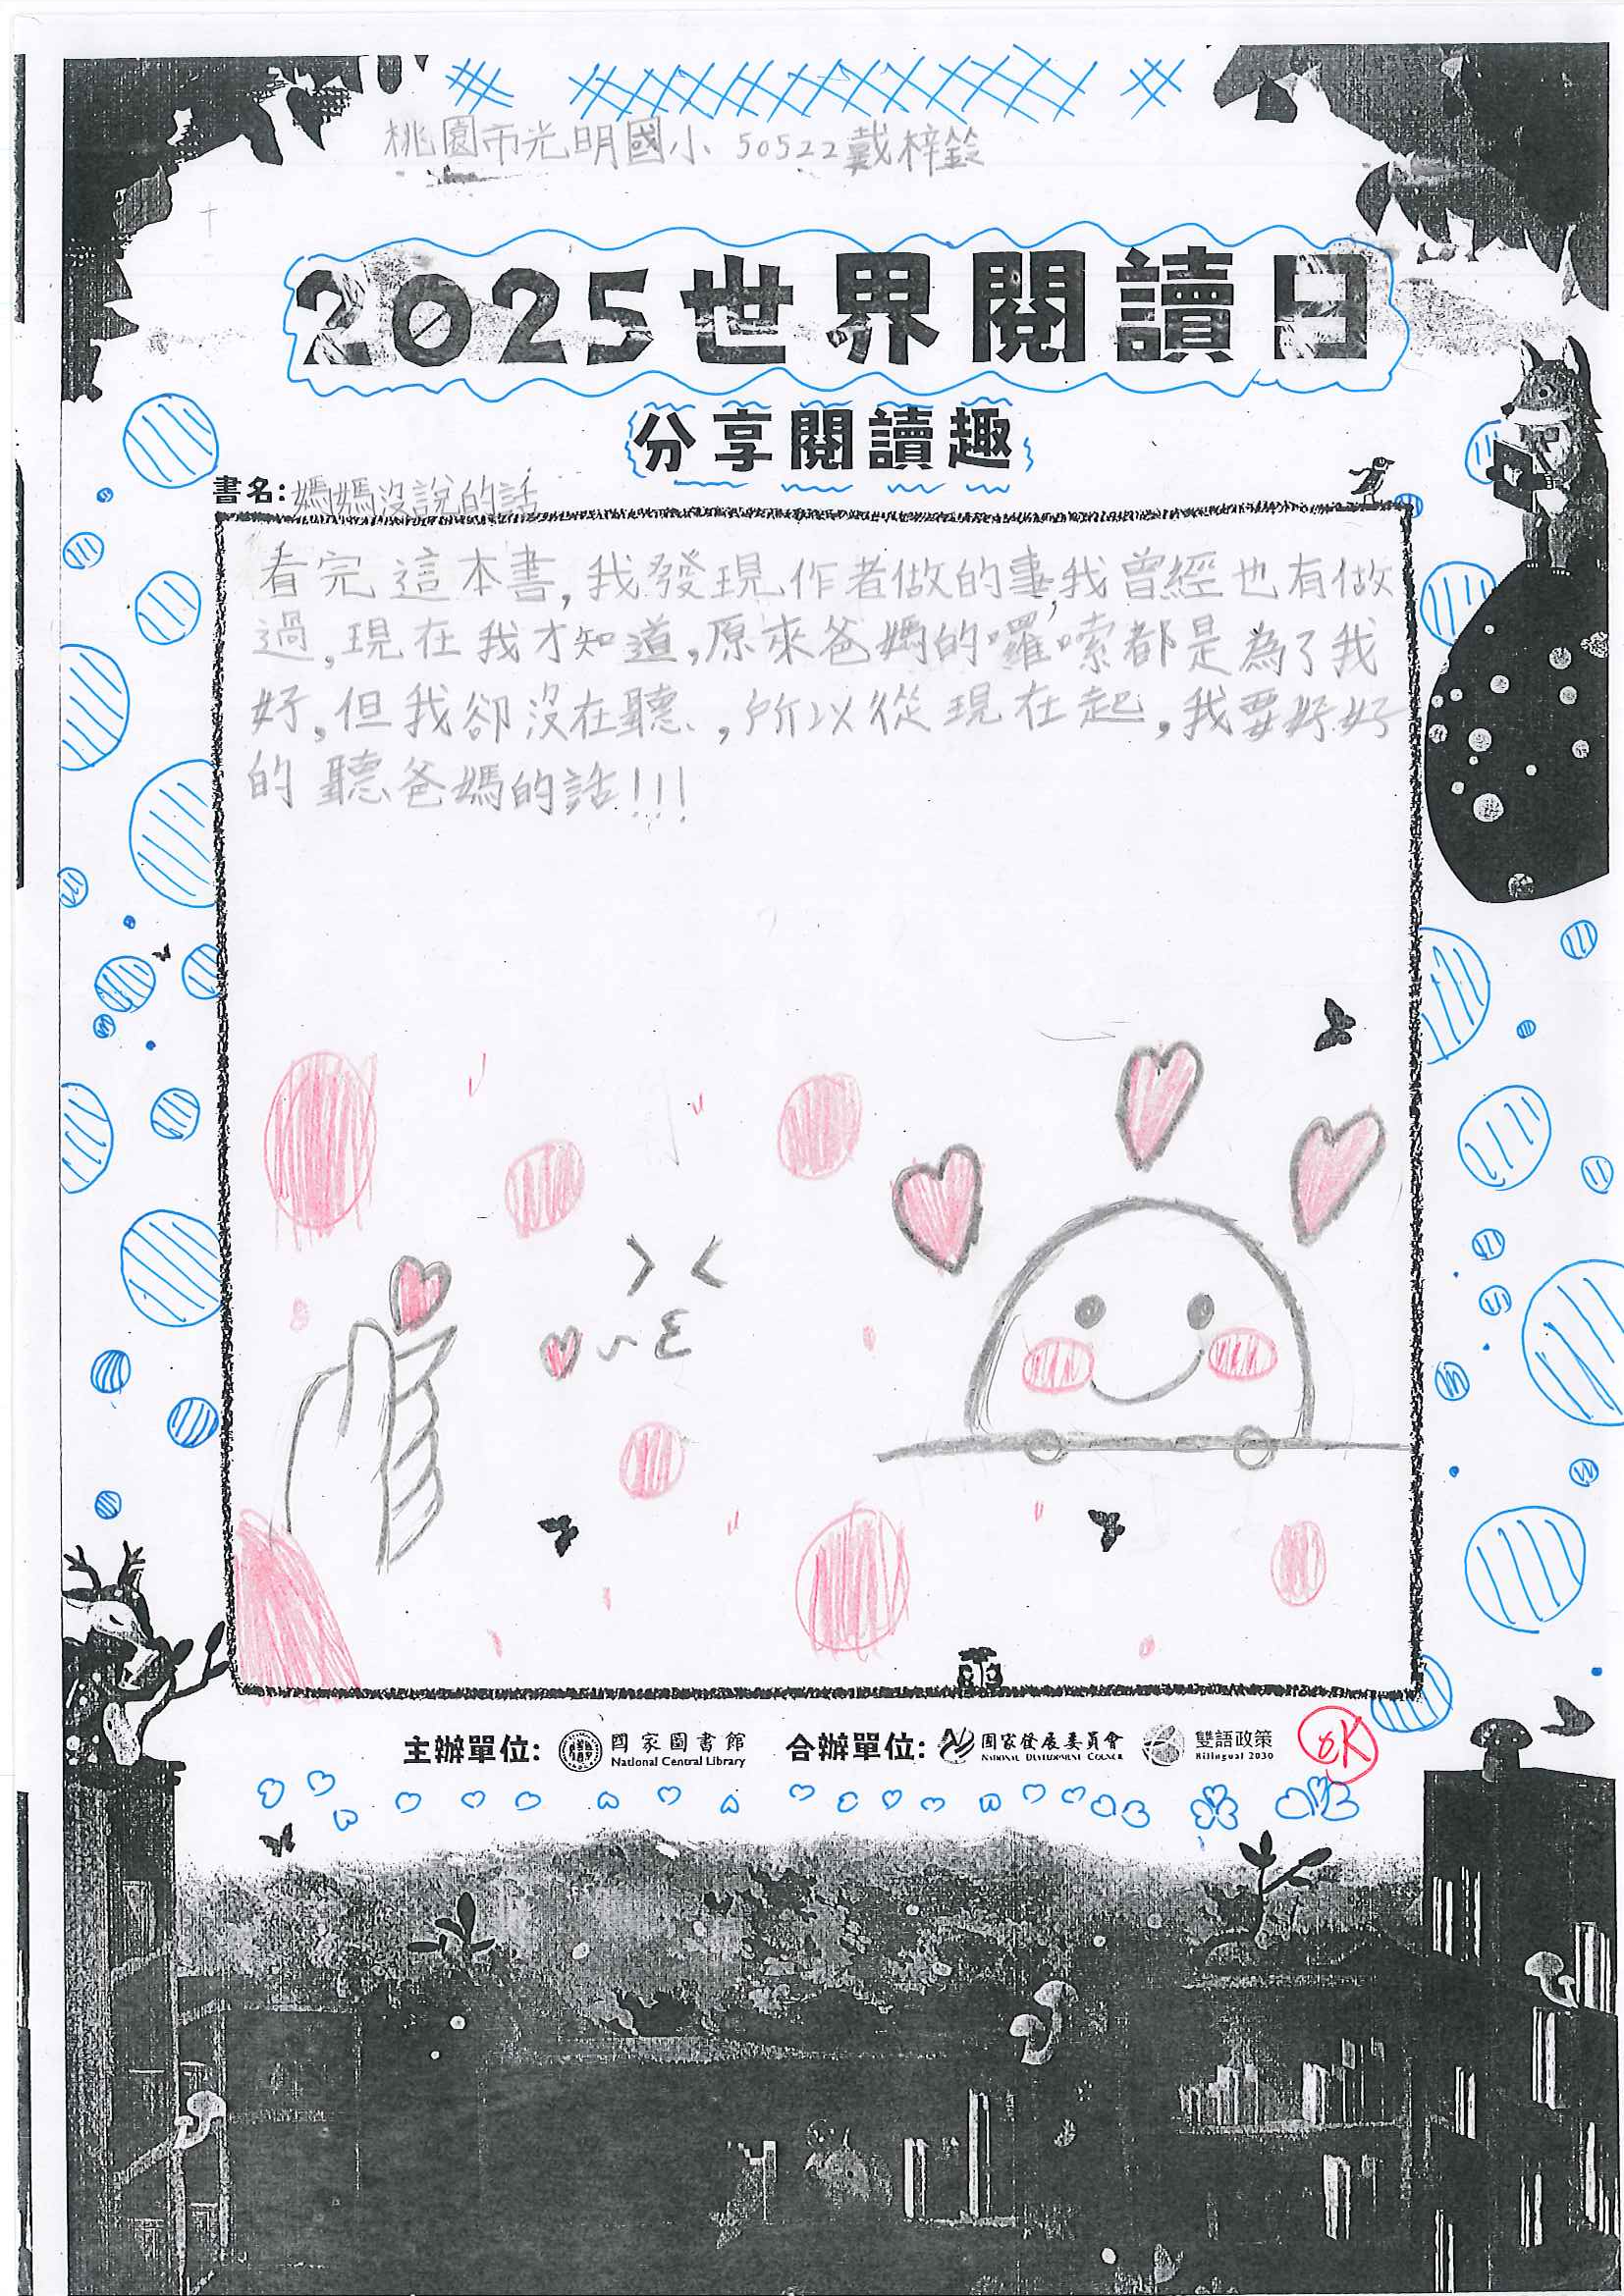 桃園市光明國小 50522戴梓鈴
2025世界閱讀日
分享閱讀趣
書名:媽媽沒說的話
看完這本書,我發現作者做的事,我曾經也有做
過,現在我才知道,原來爸媽的囉嗦都是為了我
好,但我卻沒在聽,所以從現在起,我要好好
的聽爸媽的話!!!
主辦單位: 國家圖書館 National Central Library 合辦單位: 國家發展委員會 NATIONAL DEVELOPMENT COUNCIL 雙語政策 Bilingual 2030 OK